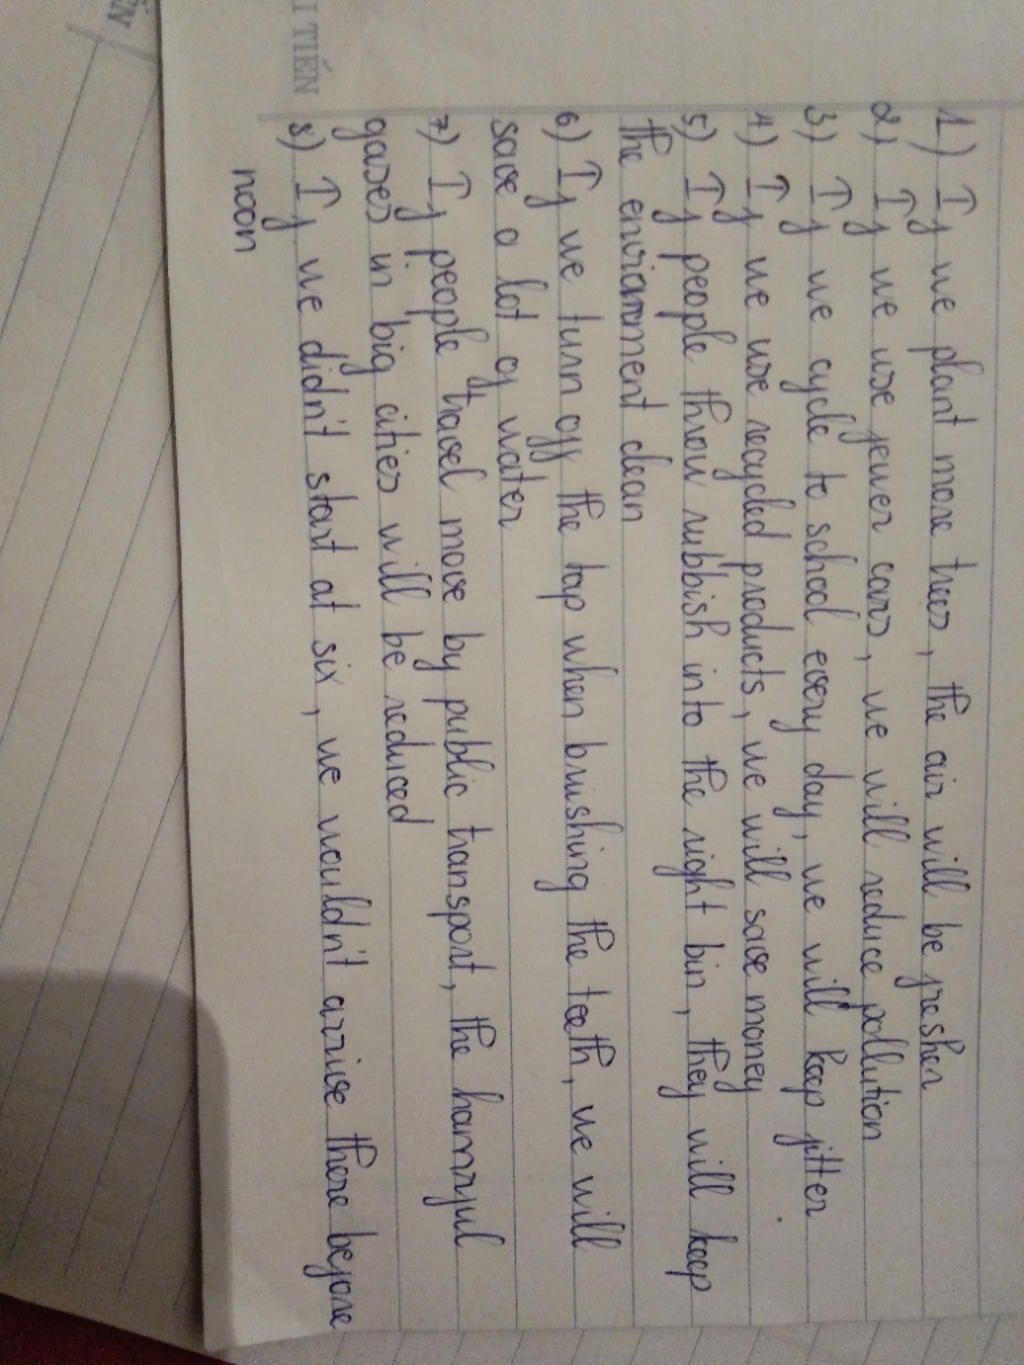 I TIẾN
1) If we plant more trees, the air will be fresher
2) If we use fewer cars, we will reduce pollution
3) If we cycle to school every day, we will keep fitter
4) If we use recycled products, we will save money
5) If people throw rubbish into the right bin, they will keep
the environment clean
6) If we turn off the tap when brushing the teeth, we will
save a lot of water
7) If people travel move by public transport, the harmful
gases in big cities will be reduced
8) If we didn't start at six, we wouldn't arrive there before
noon